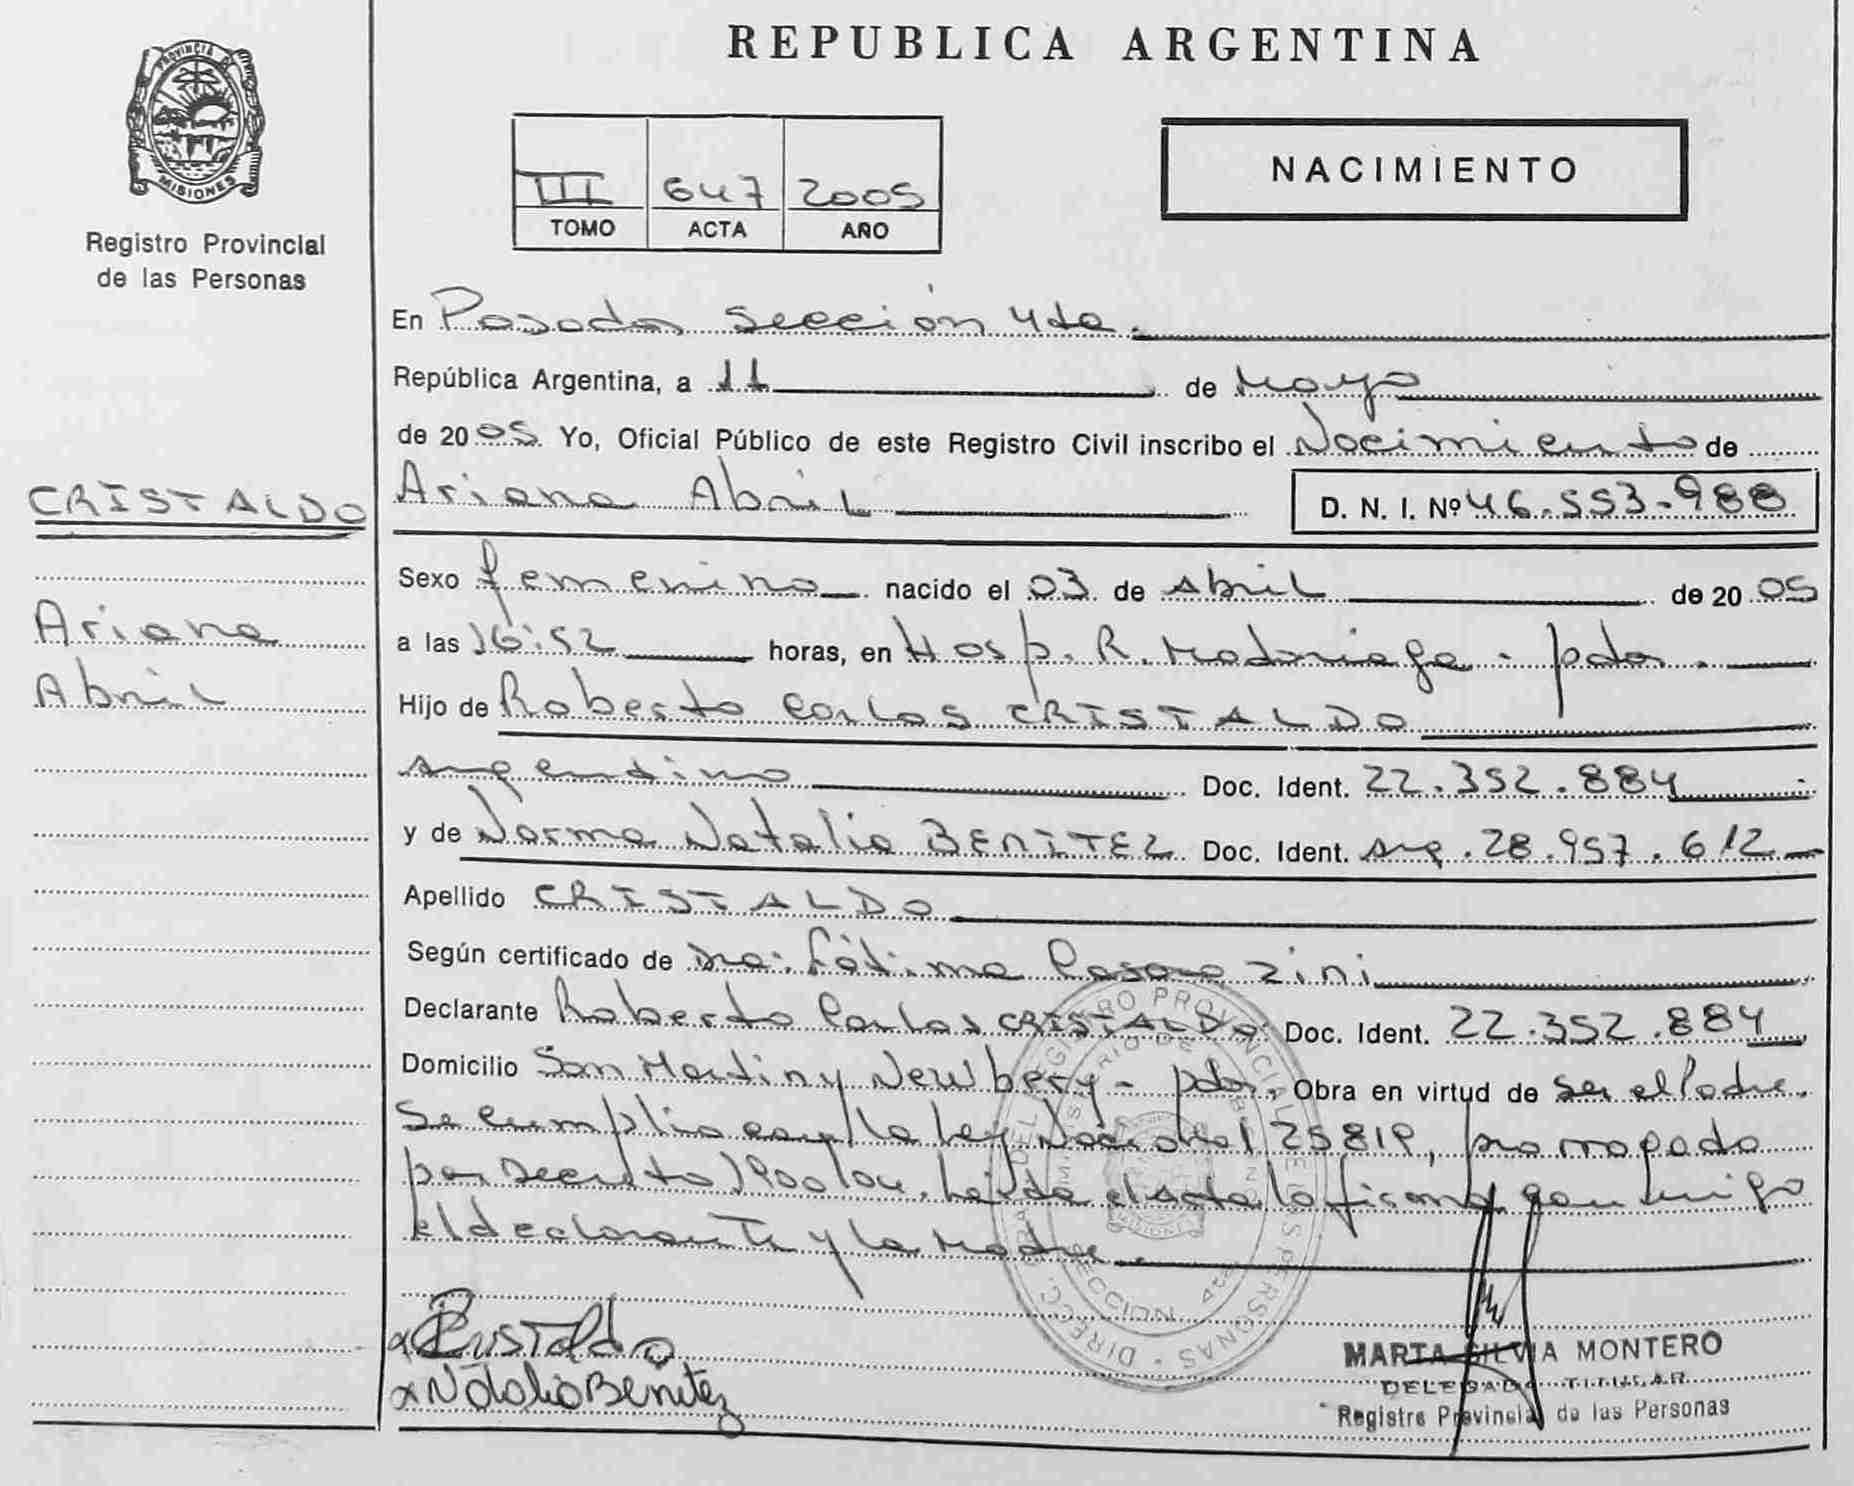 REPUBLICA ARGENTINA
PROVINCIA DE
MISIONES
Registro Provincial
de las Personas
III 647 2005
TOMO ACTA AÑO
NACIMIENTO
En Posadas Sección 4ta.
República Argentina, a 11 de Mayo
de 2005 Yo, Oficial Público de este Registro Civil inscribo el Nacimiento de
CRISTALDO
Ariana Abril D. N. I. Nº 46.553.988
Sexo femenino nacido el 03 de Abril de 2005
Ariana
a las 16:52 horas, en Hosp. R. Madariaga - pdas.
Abril
Hijo de Roberto Carlos CRISTALDO
argentino Doc. Ident. 22.352.884
y de Norma Natalia BENITEZ Doc. Ident. arg. 28.957.612
Apellido CRISTALDO
Según certificado de Dra. Fátima
Declarante Roberto Carlos CRISTALDO Doc. Ident. 22.352.884
Domicilio San Martin y Newbery - pdas. Obra en virtud de ser el Padre.
Se cumplio con la Ley Nacional 25819, prorrogado
por Decreto 1900/04. Leida el Acta la firman conmigo
el declarante y la Madre.
DIRECC. GRAL. DEL REGISTRO PROVINCIAL DE LAS PERSONAS
MINISTERIO DE GOBIERNO
SECCION 4ta
x Cristaldo
x Natalia Benitez
MARTA SILVIA MONTERO
DELEGADO TITULAR
Registro Provincial de las Personas